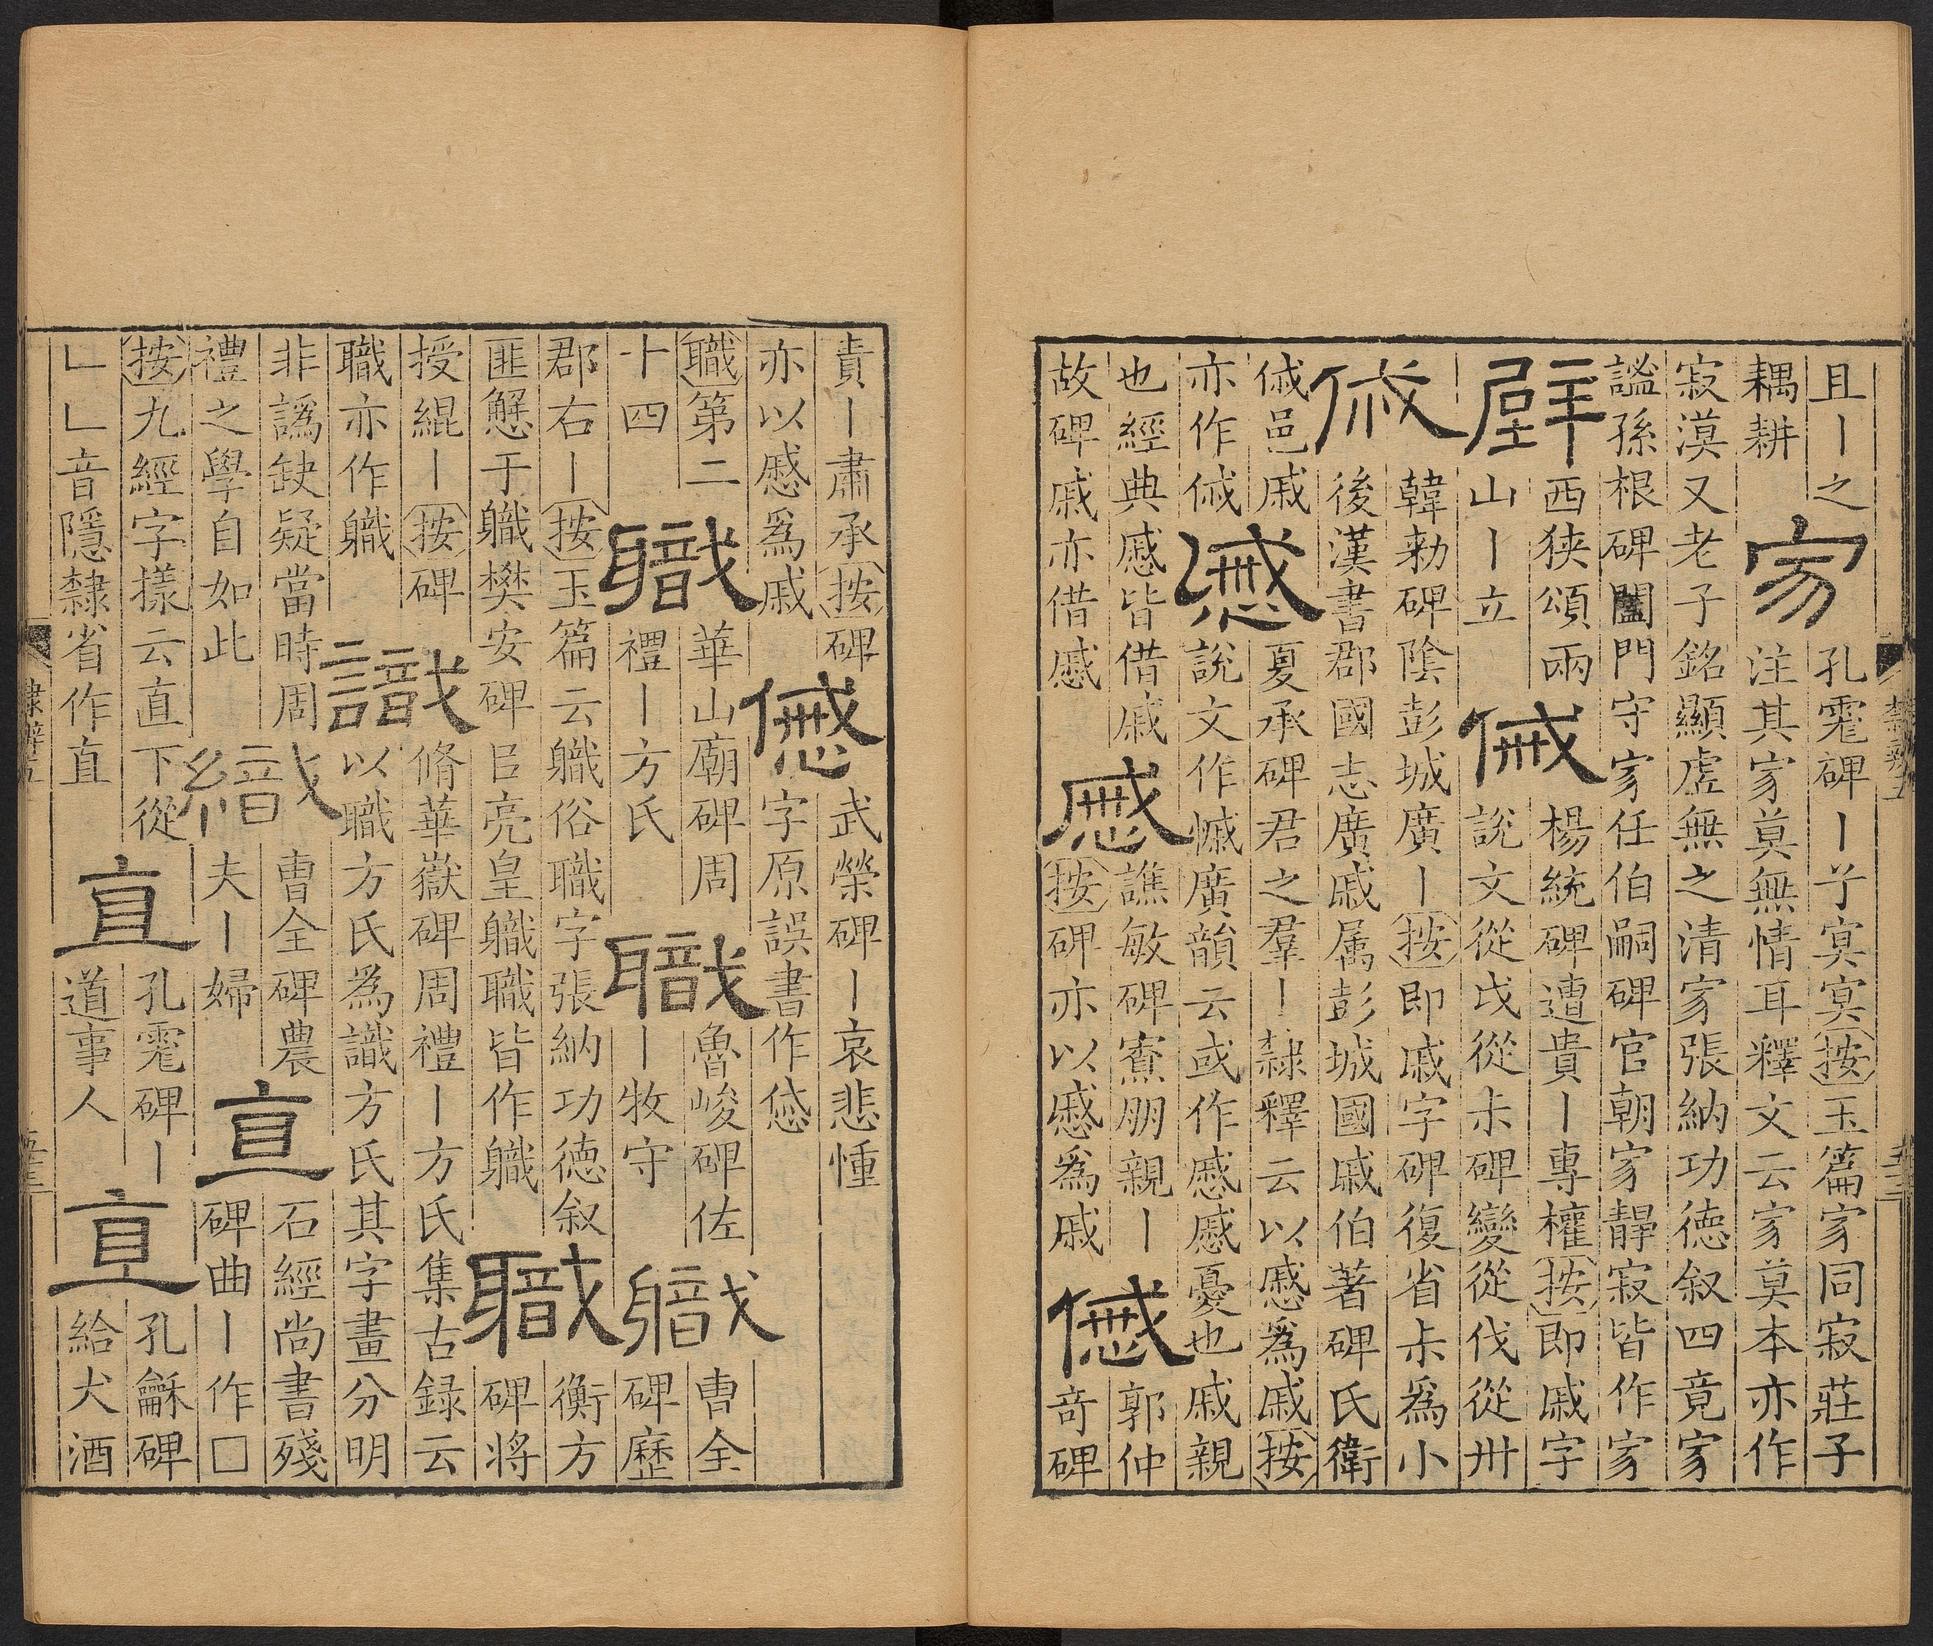 且丨之
耦耕
家
孔彪碑丨兮冥冥按玉篇家同寂莊子
注其家莫無情耳釋文云家莫本亦作
寂漠又老子銘顯虛無之清家張納功德叙四竟家
謐孫根碑闔門守家任伯嗣碑官朝家靜寂皆作家
壁
西狹頌兩
山丨立
傶
楊統碑遭貴丨專權按即戚字
說文從戉從尗碑變從伐從卅
𠈙
韓勑碑陰彭城廣丨按即戚字碑復省尗為小
後漢書郡國志廣戚属彭城國戚伯著碑氏衛
𠈙邑戚
亦作傶
慽
夏承碑君之羣丨隸釋云以慼爲戚按
說文作慽廣韻云或作慼慼憂也戚親
也經典慼皆借戚
故碑戚亦借慼
慼
譙敏碑寮朋親丨
按碑亦以慼爲戚
慽
郭仲
奇碑
責丨肅承按碑
亦以慼爲戚
慽
武榮碑丨哀悲慟
字原誤書作慫
職第二
十四
職
華山廟碑周
禮丨方氏
職
魯峻碑佐
丨牧守
軄
曹全
碑歷
郡右丨按玉篇云軄俗職字張納功德叙
匪懈于軄樊安碑臣亮皇軄職皆作軄
職
衡方
碑將
授緄丨按碑
職亦作軄
識
脩華嶽碑周禮丨方氏集古録云
以職方氏為識方氏其字畫分明
非譌缺疑當時周
禮之學自如此
織
曹全碑農
夫丨婦
直
石經尚書殘
碑曲丨作□
按九經字樣云直下從
乚乚音隱隸省作直
直
孔彪碑丨
道事人
直
孔龢碑
給犬酒